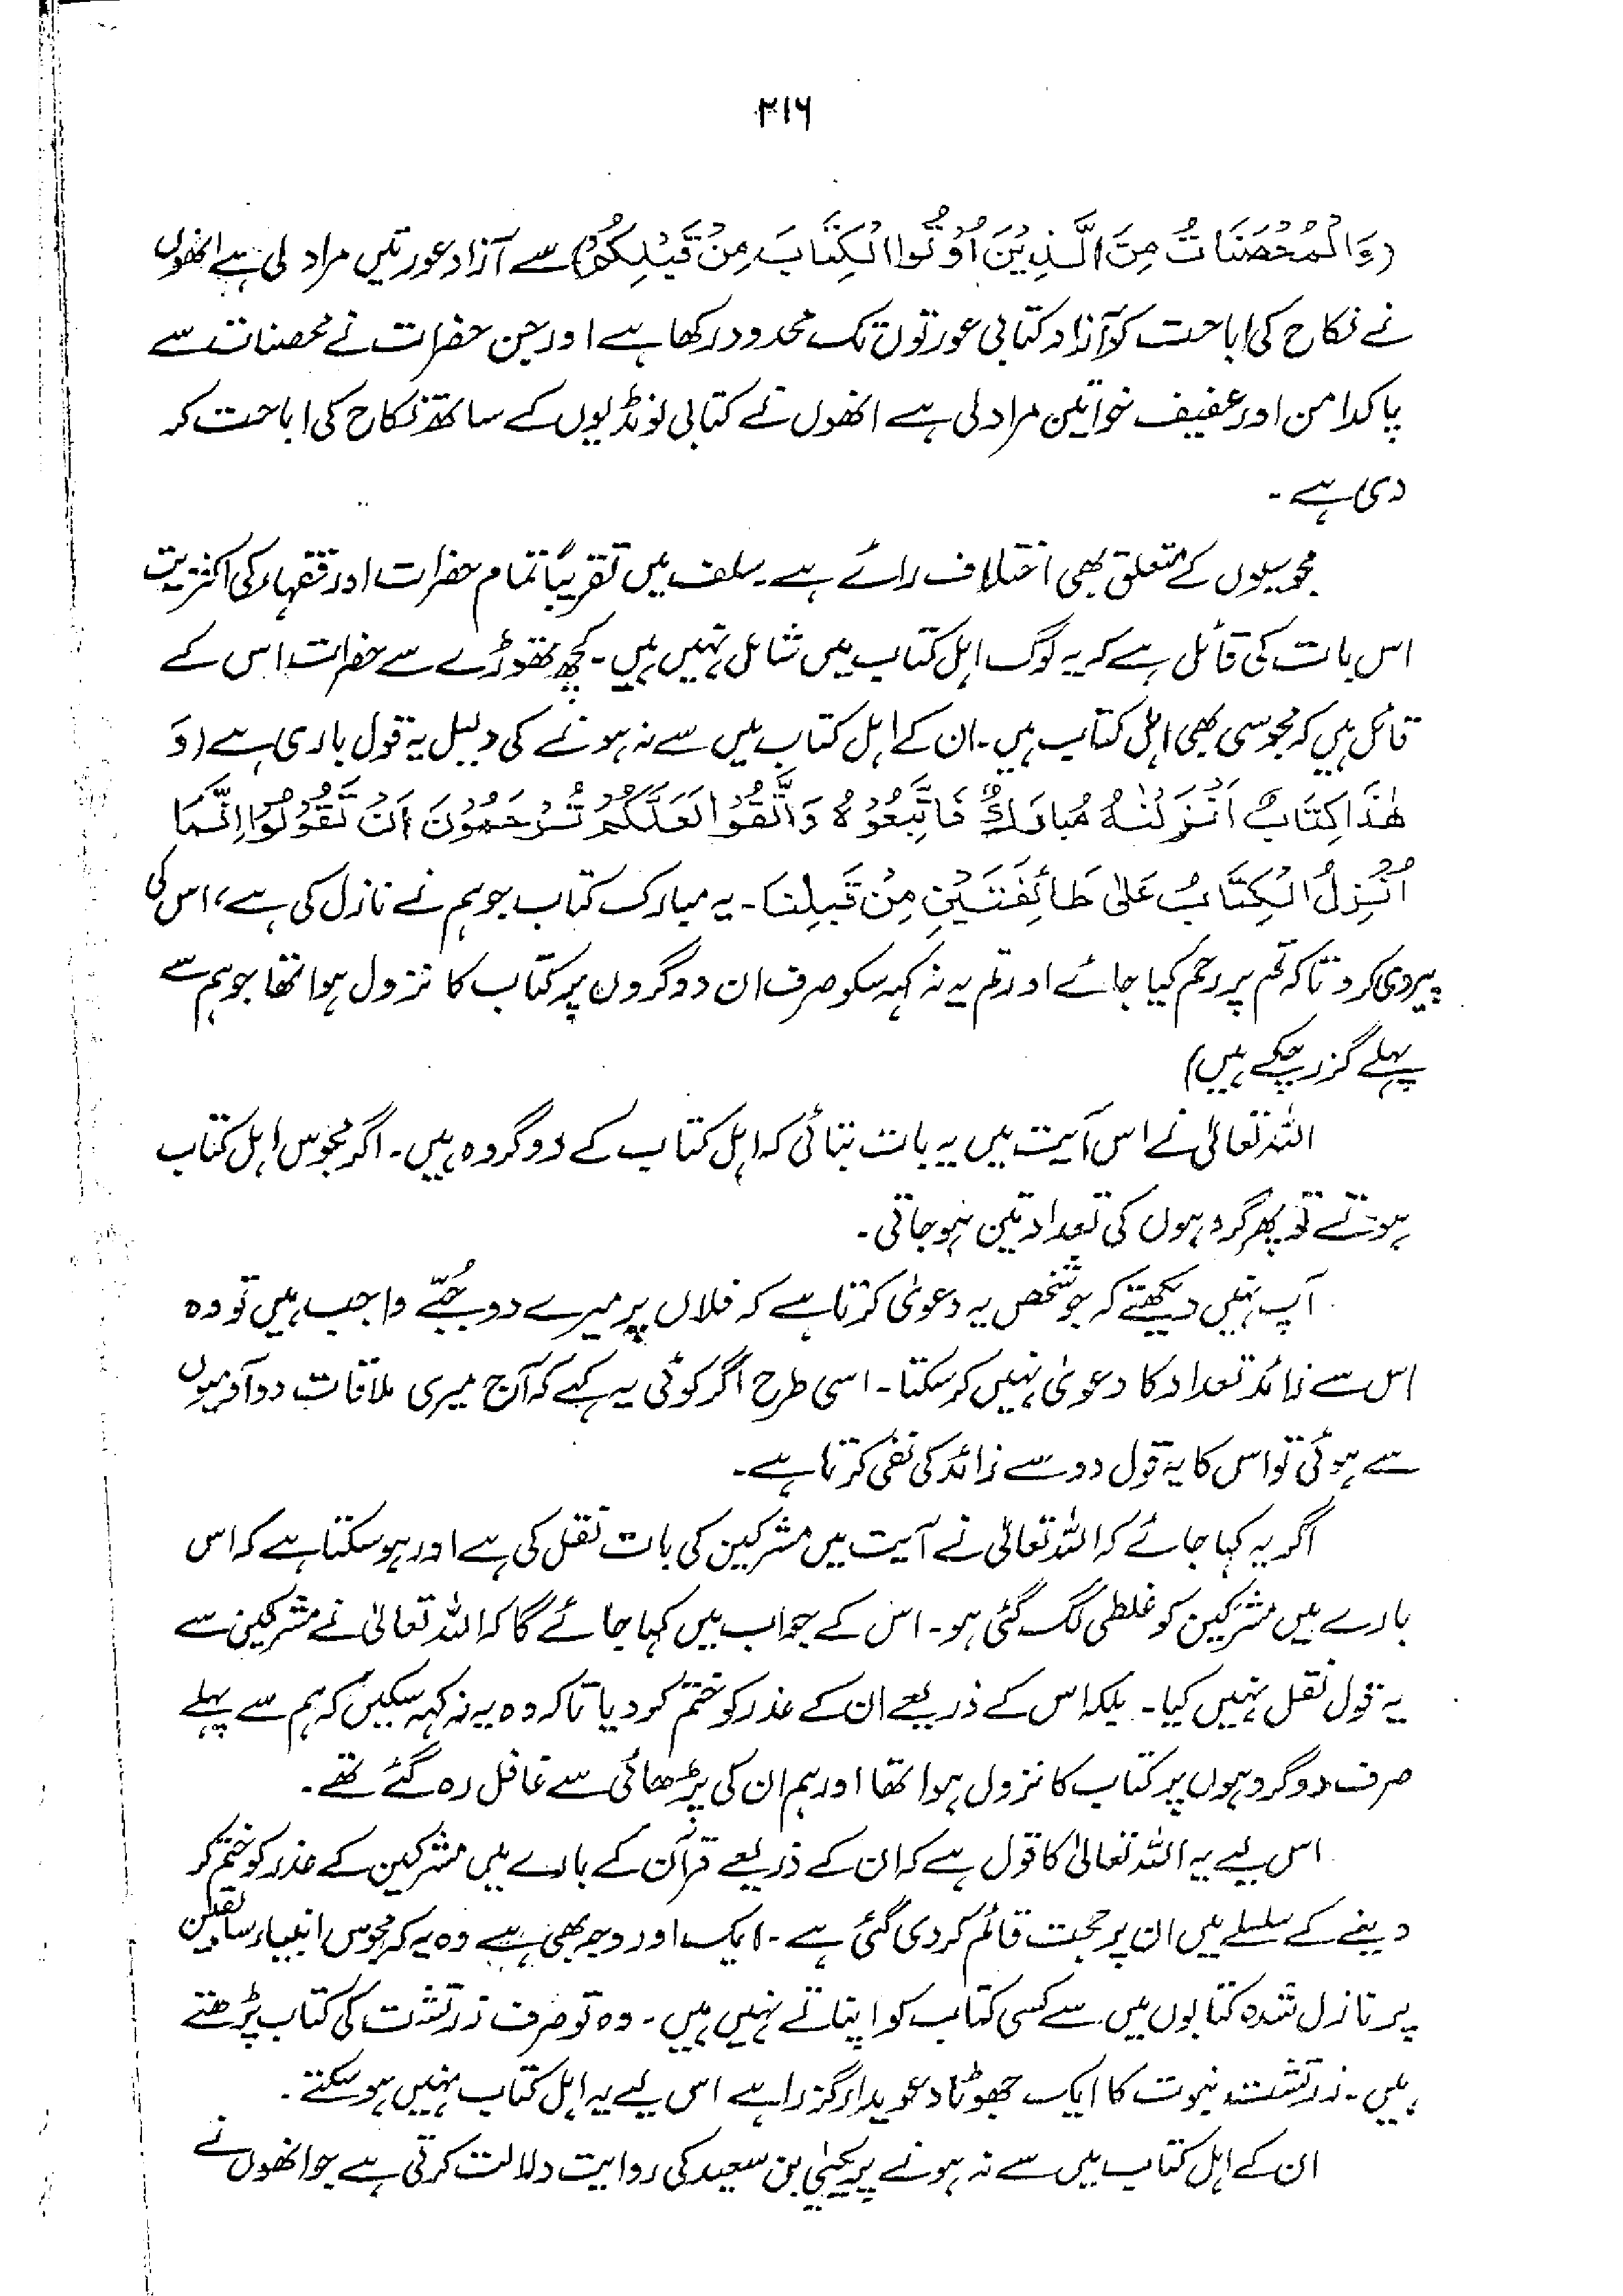 ۳۱۶
(وَالْمُحْصَنَاتُ مِنَ الَّذِيْنَ اُوْتُوا الْكِتَابَ مِنْ قَبْلِكُمْ) سے آزاد عورتیں مراد لی ہے انھوں
نے نکاح کی اباحت کو آزاد کتابی عورتوں تک محدود رکھا ہے اور جن حضرات نے محصنات سے
پاکدامن اور عفیف خواتین مراد لی ہے انھوں نے کتابی لونڈیوں کے ساتھ نکاح کی اباحت کر
دی ہے۔
مجوسیوں کے متعلق بھی اختلاف رائے ہے۔ سلف میں تقریباً تمام حضرات اور فقہاء کی اکثریت
اس بات کی قائل ہے کہ یہ لوگ اہل کتاب میں شامل نہیں ہیں۔ کچھ تھوڑے سے حضرات اس کے
قائل ہیں کہ مجوسی بھی اہل کتاب ہیں۔ ان کے اہل کتاب میں سے نہ ہونے کی دلیل یہ قول باری ہے (وَ
هٰذَا كِتَابٌ اَنْزَلْنٰهُ مُبَارَكٌ فَاتَّبِعُوْهُ وَاتَّقُوْا لَعَلَّكُمْ تُرْحَمُوْنَ اَنْ تَقُوْلُوْا اِنَّمَا
اُنْزِلَ الْكِتَابُ عَلٰى طَائِفَتَيْنِ مِنْ قَبْلِنَا۔ یہ مبارک کتاب جو ہم نے نازل کی ہے، اس کی
پیروی کرو تاکہ تم پر رحم کیا جائے اور تم یہ نہ کہہ سکو صرف ان دو گروں پر کتاب کا نزول ہوا تھا جو ہم سے
پہلے گزر چکے ہیں)
اللہ تعالیٰ نے اس آیت میں یہ بات بتائی کہ اہل کتاب کے دو گروہ ہیں۔ اگر مجوس اہل کتاب
ہوتے تو پھر گروہوں کی تعداد تین ہو جاتی۔
آپ نہیں دیکھتے کہ جو شخص یہ دعویٰ کرتا ہے کہ فلاں پر میرے دو جُبّے واجب ہیں تو وہ
اس سے زائد تعداد کا دعویٰ نہیں کر سکتا۔ اسی طرح اگر کوئی یہ کہے کہ آج میری ملاقات دو آدمیوں
سے ہوئی تو اس کا یہ قول دو سے زائد کی نفی کرتا ہے۔
اگر یہ کہا جائے کہ اللہ تعالیٰ نے آیت میں مشرکین کی بات نقل کی ہے اور ہو سکتا ہے کہ اس
بارے میں مشرکین کو غلطی لگ گئی ہو۔ اس کے جواب میں کہا جائے گا کہ اللہ تعالیٰ نے مشرکین سے
یہ قول نقل نہیں کیا۔ بلکہ اس کے ذریعے ان کے عذر کو ختم کر دیا تاکہ وہ یہ نہ کہہ سکیں کہ ہم سے پہلے
صرف دو گروہوں پر کتاب کا نزول ہوا تھا اور ہم ان کی پڑھائی سے غافل رہ گئے تھے۔
اس لیے یہ اللہ تعالیٰ کا قول ہے کہ ان کے ذریعے قرآن کے بارے میں مشرکین کے عذر کو ختم کر
دینے کے سلسلے میں ان پر حجت قائم کر دی گئی ہے۔ ایک اور وجہ بھی ہے وہ یہ کہ مجوس انبیاء سابقین
پر نازل شدہ کتابوں میں سے کسی کتاب کو اپناتے نہیں ہیں۔ وہ تو صرف زرتشت کی کتاب پڑھتے
ہیں۔ زرتشت نبوت کا ایک جھوٹا دعویدار گزرا ہے اس لیے یہ اہل کتاب نہیں ہو سکتے۔
ان کے اہل کتاب میں سے نہ ہونے پر یحییٰ بن سعید کی روایت دلالت کرتی ہے جو انھوں نے